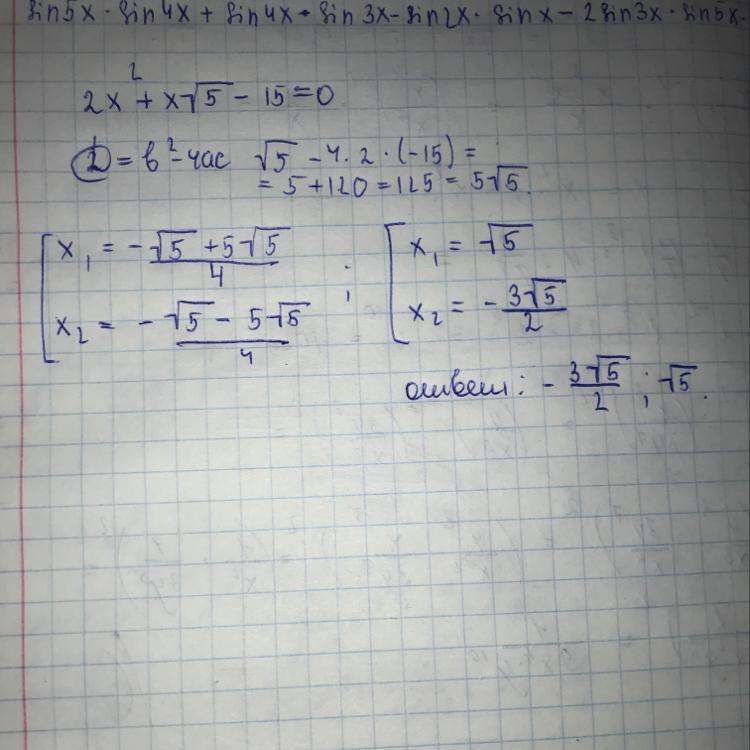 sin5x · sin4x + sin4x · sin3x - sin2x · sinx - 2sin3x · sin5x -
2x² + x√5 - 15 = 0
D = b² - 4ac √5 - 4·2·(-15) =
= 5 + 120 = 125 = 5√5.
x₁ = -√5 + 5√5 / 4 ; x₁ = √5
x₂ = -√5 - 5√5 / 4 x₂ = -3√5/2
ответ: -3√5/2 ; √5.